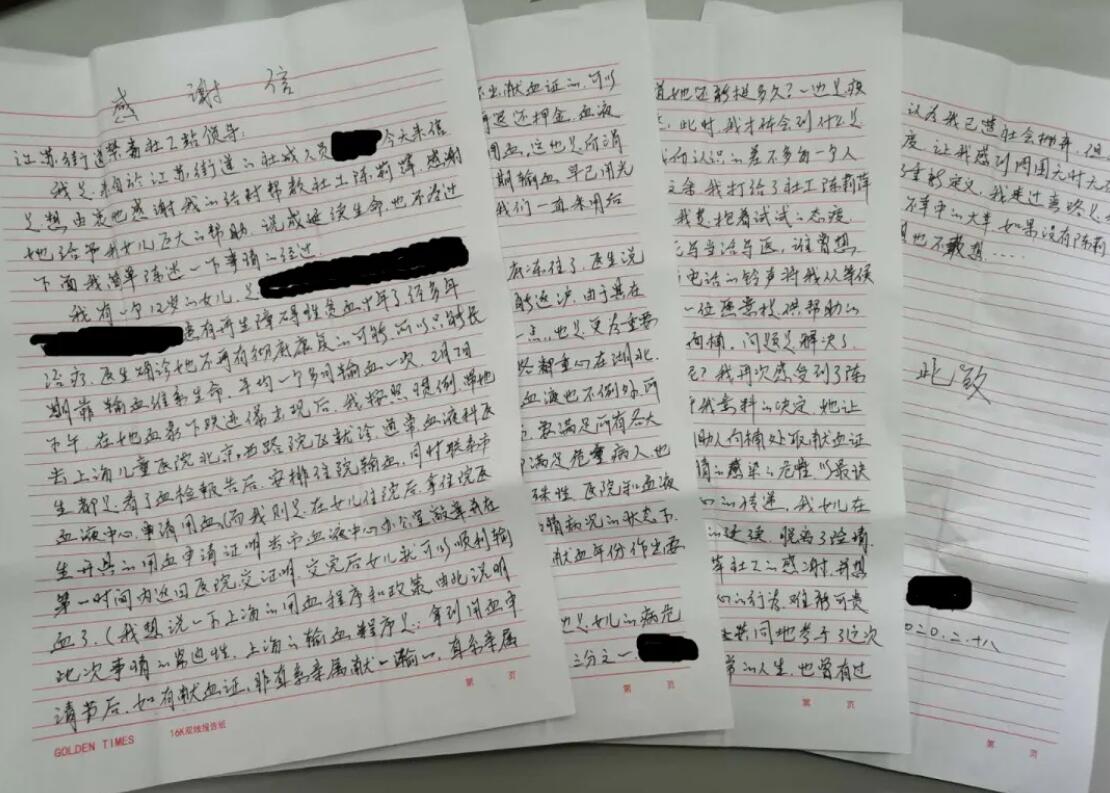 感谢信
江苏街道禁毒社工站领导:
我是来自於江苏街道的社戒人员 今天来信
是想由衷地感谢我的结对帮教社工陈莉萍,感谢
她给予我女儿巨大的帮助,说成延续生命,也不为过
下面我简单陈述一下事情的经过
我有一个12岁的女儿,是
患有再生障碍性贫血十年了经多年
治疗,医生确诊她不再有彻底康复的可能,所以只能长
期靠输血维系生命,平均一个多月输血一次,2月7日
下午,在她血象下跌迹像出现后,我按照惯例,带她
去上海儿童医院北京西路院区就诊,通常血液科医
生都是看了血检报告后,安排住院输血,同时联系市
血液中心,申请用血(而我则是在女儿住院后,拿住院医
生开具的用血申请证明去市血液中心办公室敲章并在
第一时间内返回医院,交证明,交完后女儿就可以顺利输
血了,(我想说一下上海的用血程序和政策,由此说明
此次事情的紧迫性,上海的输血程序是:拿到用血申
请节后,如有献血证,非直系亲属献一输一,直系亲属
GOLDEN TIMES 16K双线报告纸
第 页
不出献血证的,可以
再退还押金,血液
用血,这也是所消
期输血,早已用光
我们一直采用后
底冻住了,医生说
能返沪,由于其在
一点,也是更为重要
路都重心在湖北,
血液也不例外,所
要满足所有各大
满足危重病人,也
殊性,医院和血液
情病况的状态下,
献血年份作出要
也是女儿的病危
三分之一,
第 页
道她还能挺多久?一边是疾
此时,我才体会到什么是
我所认识的差不多每一个人
之余,我打给了社工陈莉萍
我是抱着试试的态度,
电话的铃声将我从等候
一位愿意提供帮助的
问题是解决了,
我再次感受到了陈
我意料的决定,她让
助人何楠处取献血证
情的感染的危险,以最快
的传递,我女儿在
的延续,脱离了险情,
社工的感谢,我想
的行为,难能可贵
共同地参与了这次
常的人生,也曾有过
第 页
认为我已遭社会抛弃,但
度,让我感到网围天时天
了重新定义,我走过弯路是
的大军,如果没有陈莉
也不敢想……
此致
二0二0.二.十八
第 页